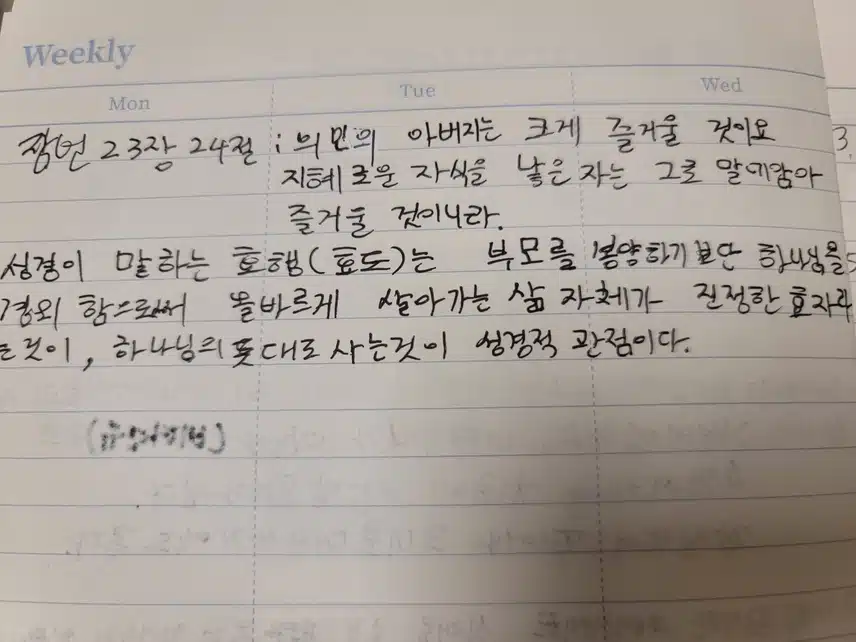 Weekly
Mon Tue Wed
잠언 23장 24절 : 의인의 아버지는 크게 즐거울 것이요
3.
지혜로운 자식을 낳은 자는 그로 말미암아
즐거울 것이니라.
성경이 말하는 효행(효도)는 부모를 봉양하기보단 하나님을
경외 함으로써 올바르게 살아가는 삶 자체가 진정한 효자라
는것이, 하나님의 뜻대로 사는것이 성경적 관점이다.